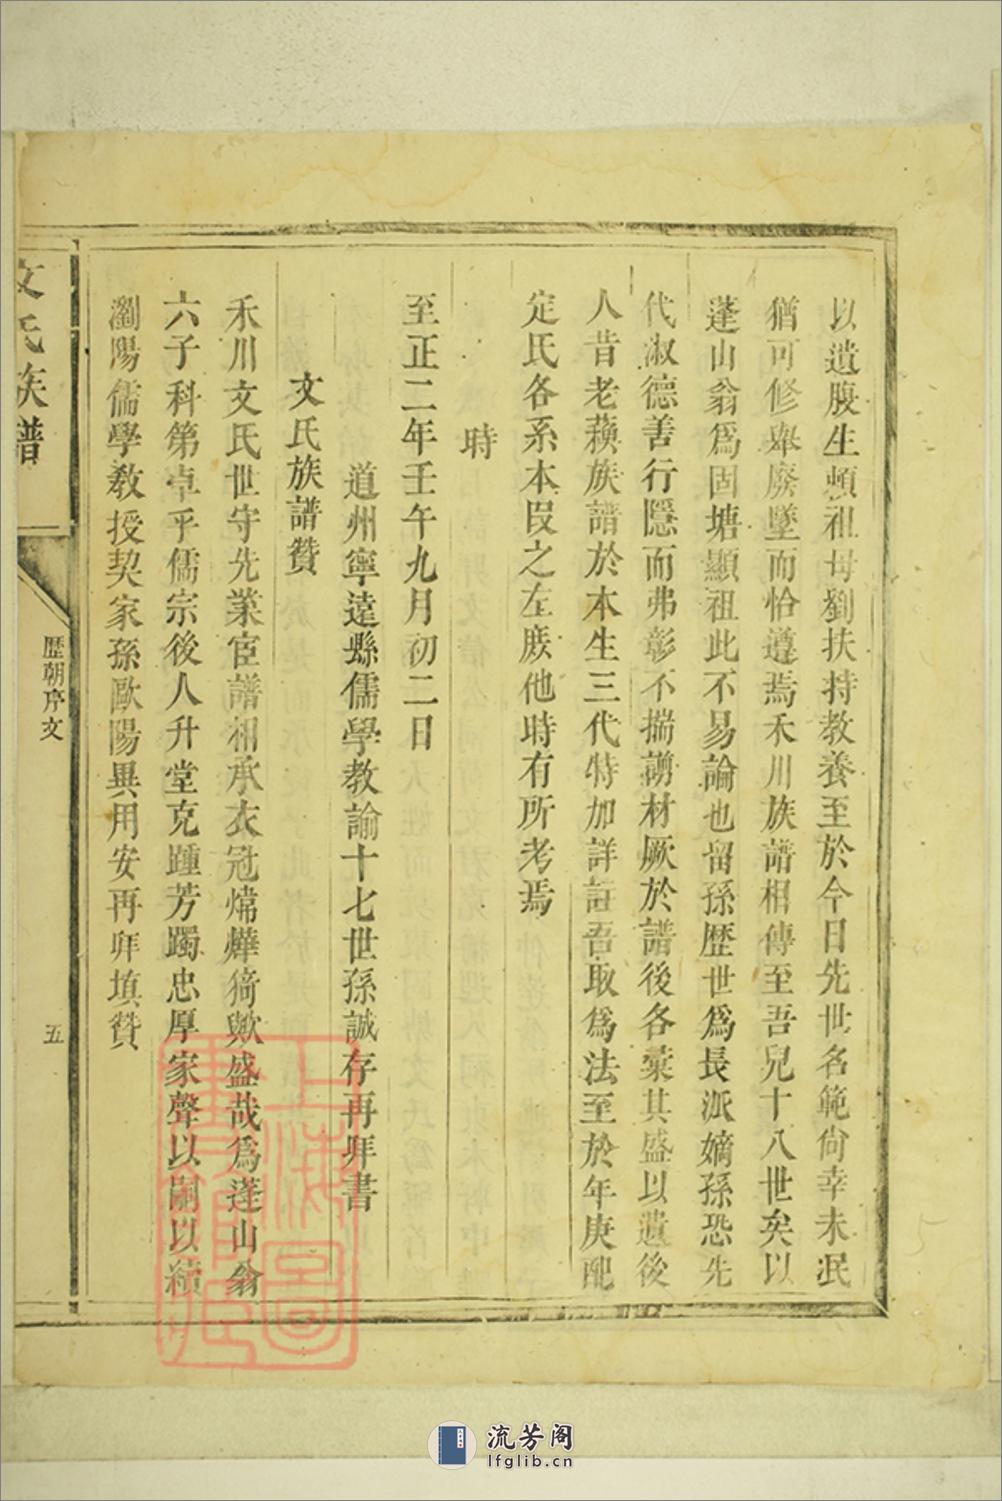 以遺腹生頼祖母劉扶持教養至於今日先世名範尙幸未泯
猶可修舉廢墜而恰遵焉禾川族譜相傳至吾兒十八世矣以
蓬山翁爲固塘顯祖此不易論也留孫歴世爲長派嫡孫恐先
代淑德善行隱而弗彰不揣謭材厥於譜後各彙其盛以遺後
人昔老蘓族譜於本生三代特加詳註吾取爲法至於年庚配
定氏各系本叚之左庶他時有所考焉
時
至正二年壬午九月初二日
道州寧遠縣儒學教諭十七世孫誠存再拜書
文氏族譜贊
禾川文氏世守先業宦譜相承衣冠煒燁猗歟盛哉爲蓬山翁
六子科第卓乎儒宗後人升堂克踵芳躅忠厚家聲以嗣以續
瀏陽儒學教授契家孫歐陽異用安再拜填贊
文氏族譜
歴朝序文
五
上海圖書館藏
流芳阁
lfglib.cn